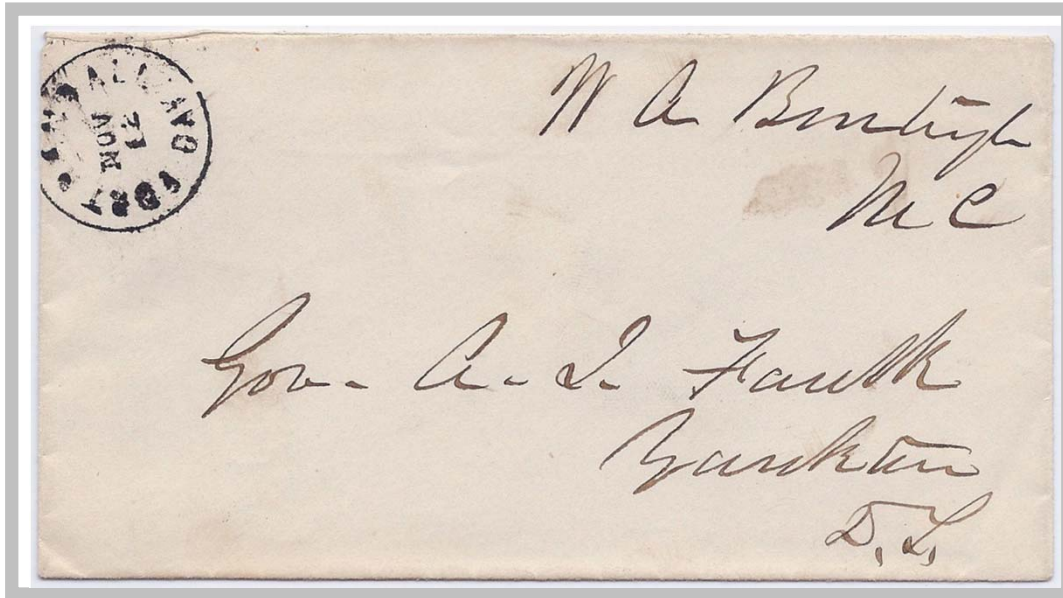 FORT RANDALL DAK
NOV
W A Burleigh
M C
Gov. A. J. Faulk
Yankton
D.T.